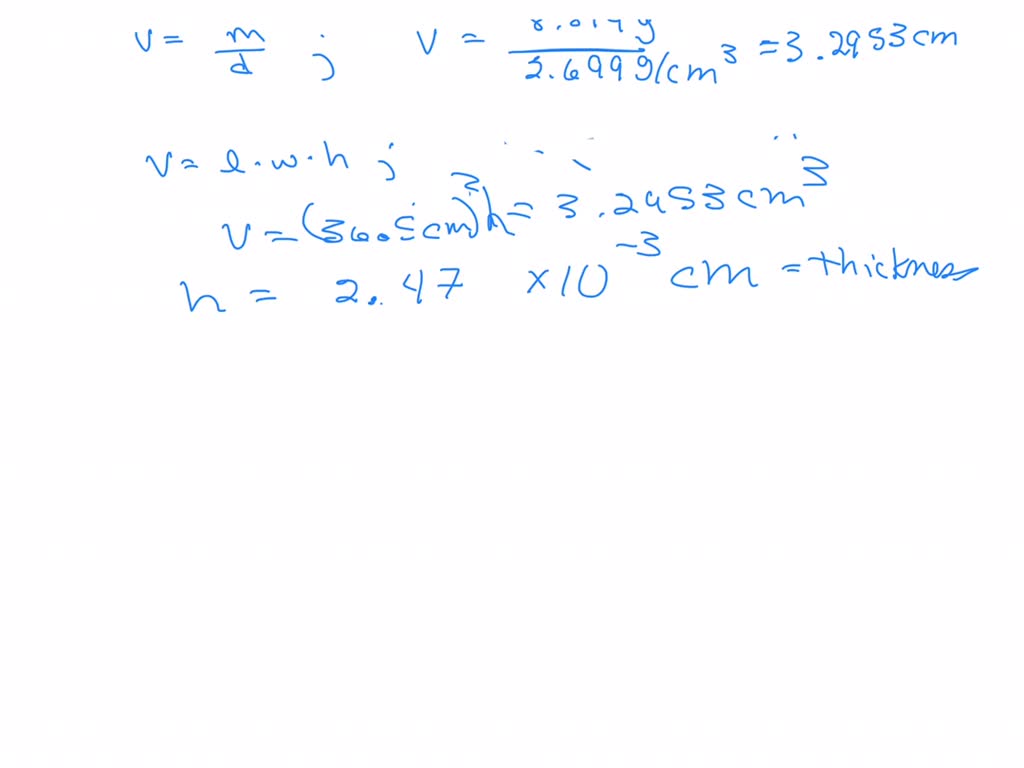 v = m/d ; v = 8.017g / 2.699g/cm³ = 3.2953cm
v = l·w·h ;
v = (36.5cm)²h = 3.2953cm³
h = 2.47 x10⁻³ cm = thickness